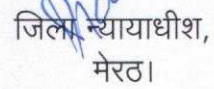 जिला न्यायाधीश,
मेरठ।